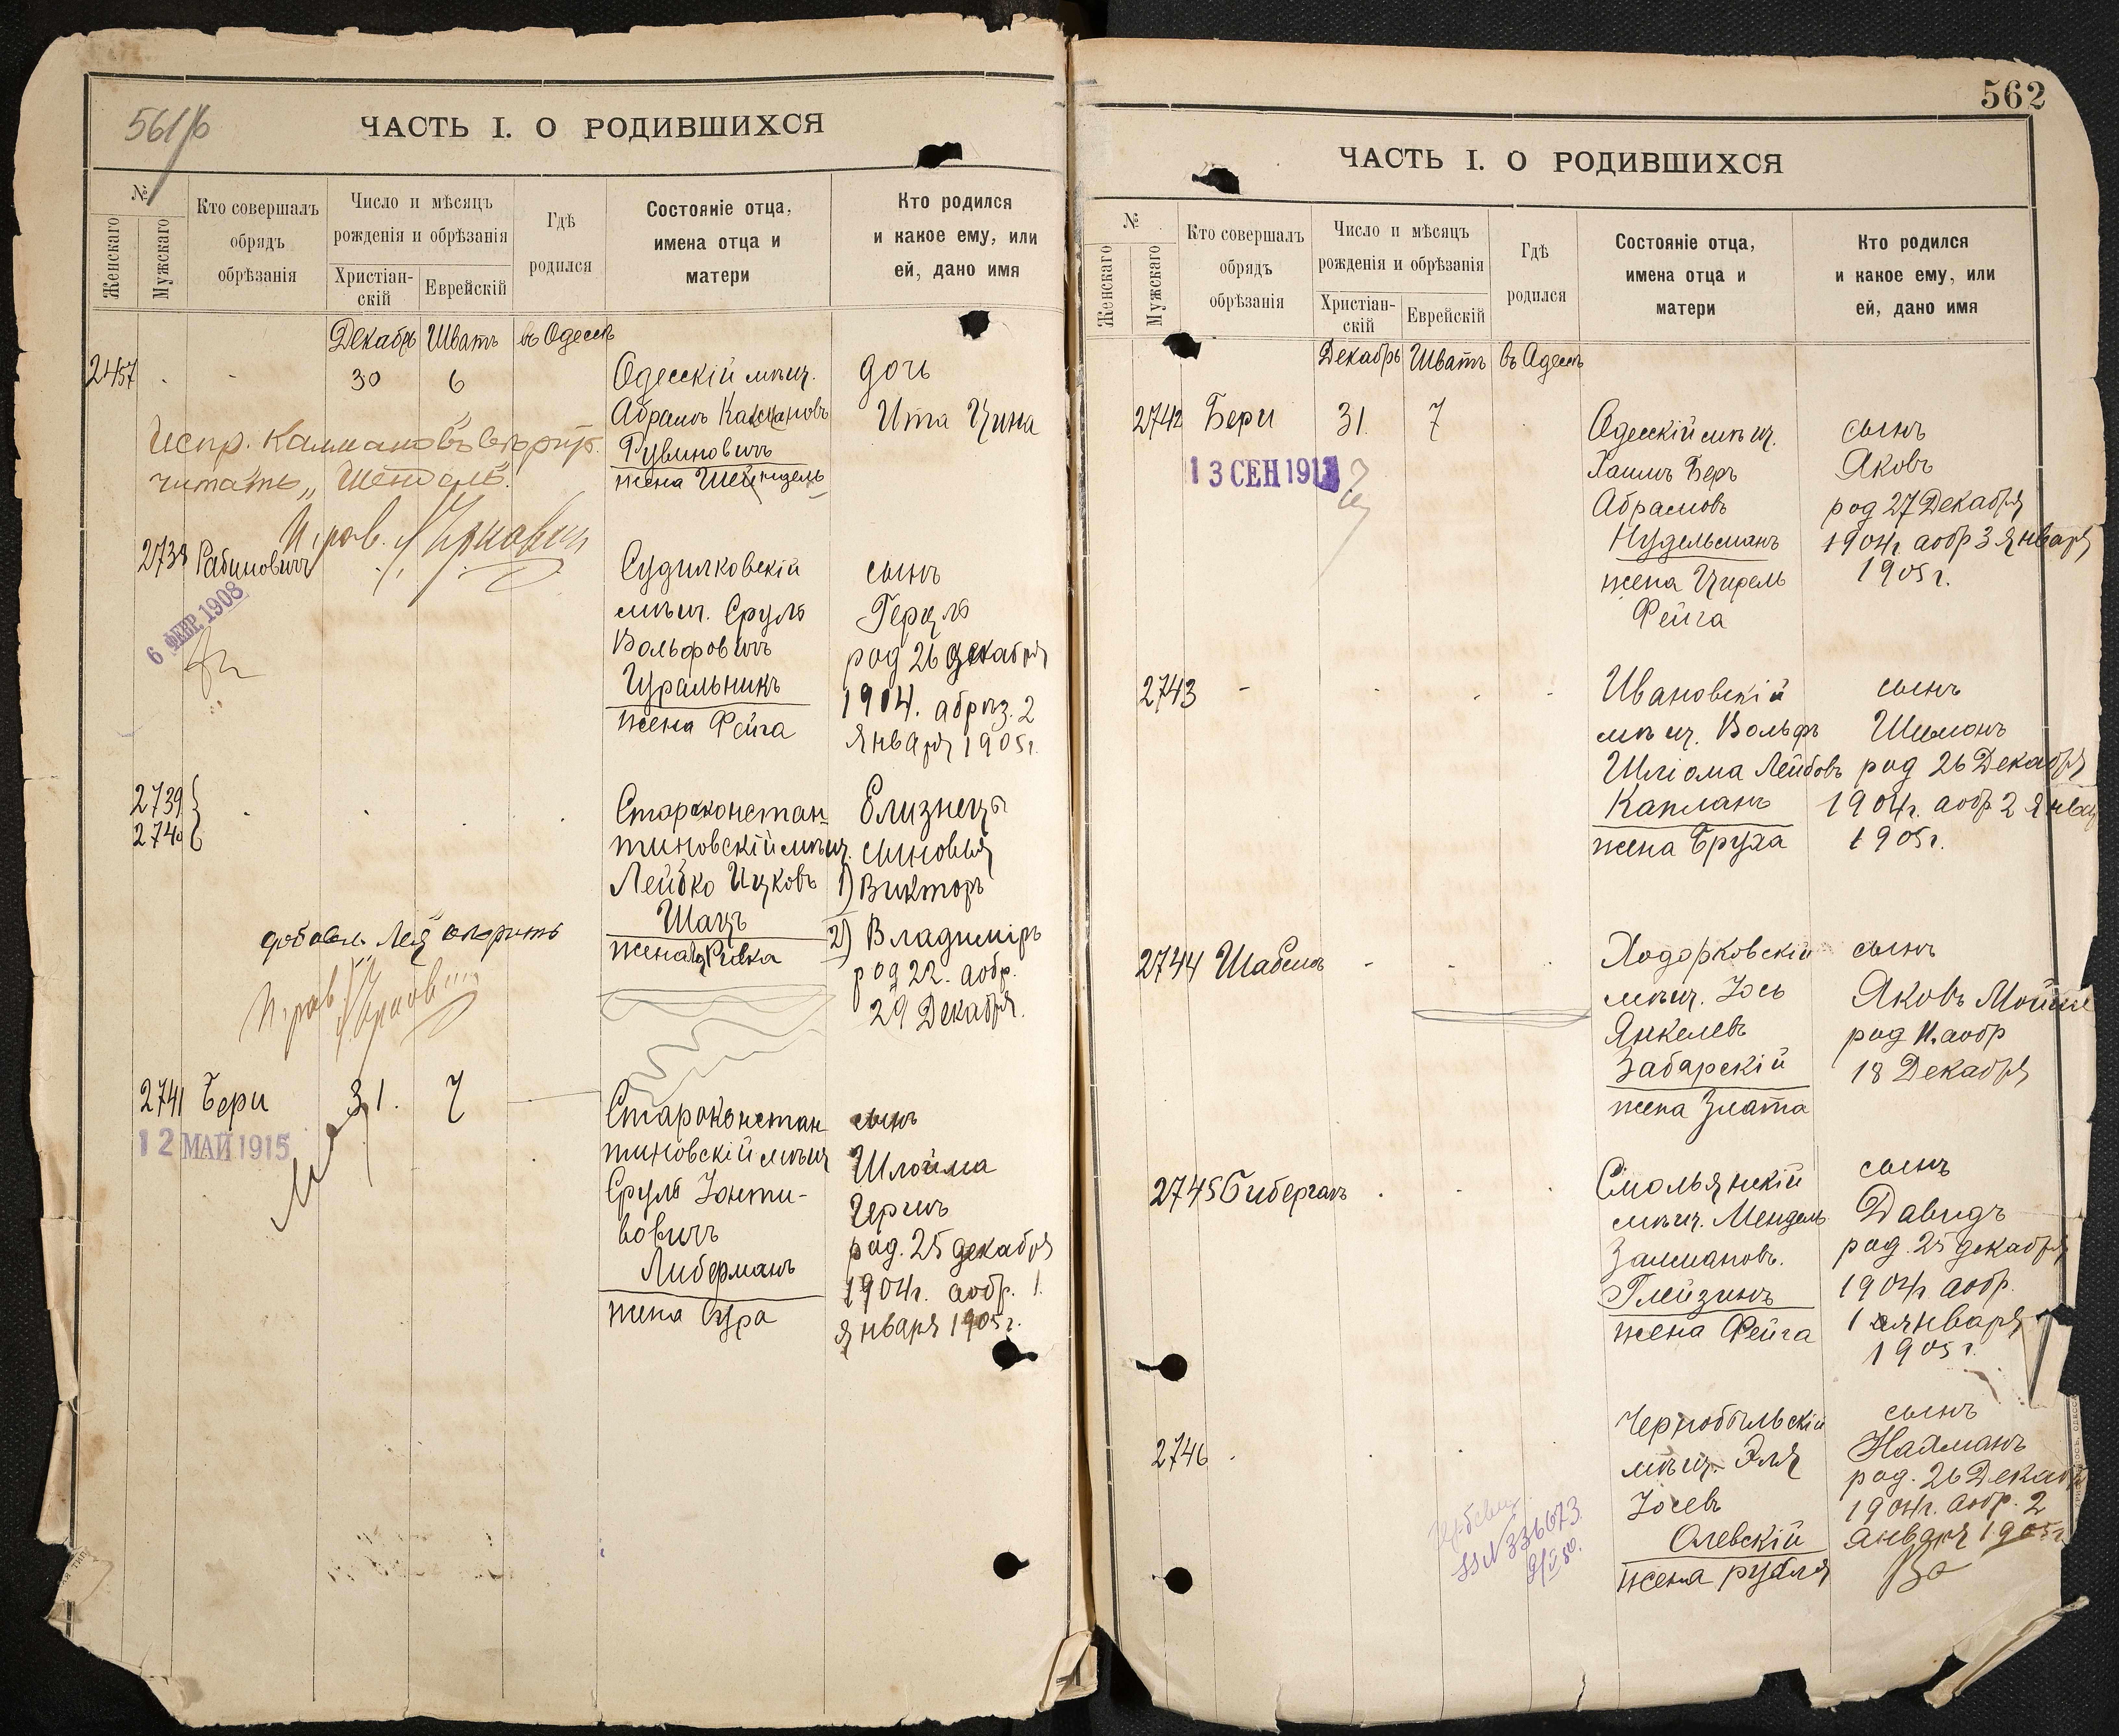 561/б
ЧАСТЬ I. О РОДИВШИХСЯ
№
Женскаго
Мужскаго
Кто совершалъ
обрядъ
обрѣзанія
Число и мѣсяцъ
рожденія и обрѣзанія
Христіан-
скій
Еврейскій
Гдѣ
родился
Состояніе отца,
имена отца и
матери
Кто родился
и какое ему, или
ей, дано имя
Декабрь Шватъ въ Одессѣ
2457 - - 30 6
Одесскій мѣщ.
Абрамъ Калмановъ
Рувиновичъ
жена Шейндель
дочь
Ита Цина
Испр. Калмановъ
читать „Шендель".
2738 Рабиновичъ
6 ФЕВ. 1908
Судилковскій
мѣщ. Сруль
Вольфовичъ
Гуральникъ
жена Фейга
сынъ
Герцль
род 26 декабря
1904. абрѣз. 2
января 1905г.
2739
2740
Староконстан-
тиновскій мѣщ.
Лейбко Ицковъ
Шацъ
жена Ривка
Близнецы
сыновья
1) Викторъ
2) Владиміръ
род 22. аобр.
29 Декабря.
добавл. Лея вѣрить
2741 Бери 31. 7
12 МАЙ 1915
Староконстан-
тиновскій мѣщ
Сруль Іонти-
вовичъ
Либерманъ
жена Сура
сынъ
Шлойма
Гершъ
род. 25 декабря
1904г. аобр. 1.
января 1905г.
562
ЧАСТЬ I. О РОДИВШИХСЯ
№
Женскаго
Мужскаго
Кто совершалъ
обрядъ
обрѣзанія
Число и мѣсяцъ
рожденія и обрѣзанія
Христіан-
скій
Еврейскій
Гдѣ
родился
Состояніе отца,
имена отца и
матери
Кто родился
и какое ему, или
ей, дано имя
Декабрь Шватъ въ Одессѣ
2742 Бери 31. 7
13 СЕН 1913
Одесскій мѣщ.
Хаимъ Беръ
Абрамовъ
Нудельманъ
жена Цирель
Фейга
сынъ
Яковъ
род 27 Декабря
1904г аобр 3 января
1905г.
2743 -
Ивановскій
мѣщ. Вольфъ
Шліома Лейбовъ
Капланъ
жена Бруха
сынъ
Шимонъ
род 26 Декабря
1904г. аобр 2 Янва
1905г.
2744 Шабель -
Ходорковскій
мѣщ. Іось
Янкелевъ
Забарскій
жена Злата
сынъ
Яковъ Мойше
род 11. аобр
18 Декабря
2745 Бибергалъ
Смольянскій
мѣщ. Мендель
Залмановъ.
Глейзинъ
жена Фейга
сынъ
Давидъ
род. 25 декабря
1904г аобр.
1 января
1905г.
2746
Чернобыльскій
мѣщ. Эля
Іосевъ
Олевскій
жена рубля
сынъ
Нахманъ
род. 26 Декабр
1904г. аобр. 2
января 1905г
№ 336673